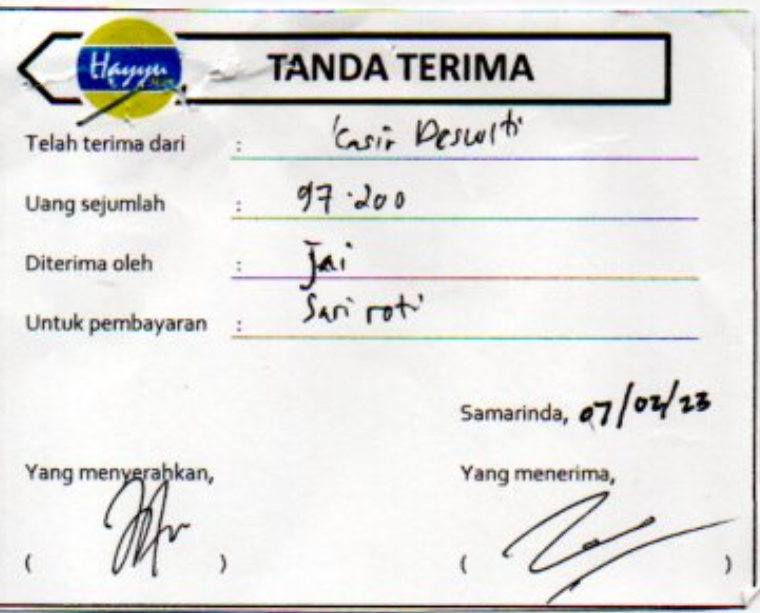 Hayyu
TANDA TERIMA
Telah terima dari : Kasir Deswiti
Uang sejumlah : 97.200
Diterima oleh : Jai
Untuk pembayaran : Sari roti
Samarinda, 07/02/23
Yang menyerahkan, Yang menerima,
( ) ( )